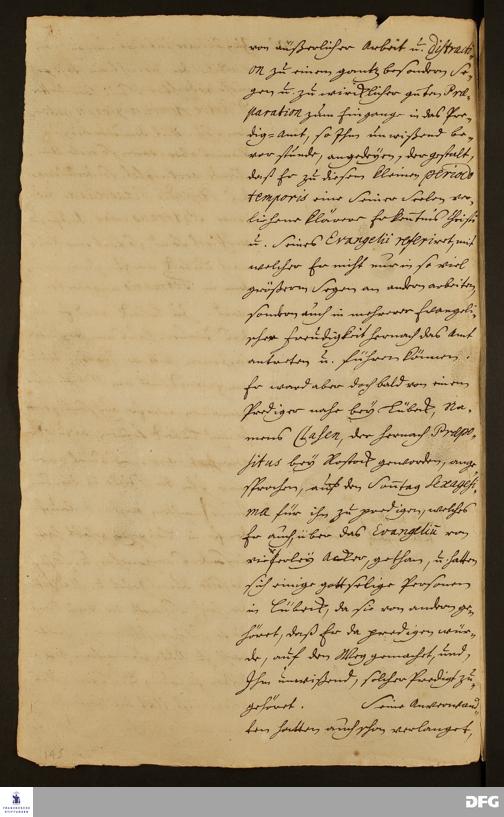 von äußerlicher Arbeit u. distracti
on zu einem gantz besondern Se,
gen u. zu würcklicher guten Præ,
paration zum Eingange in das Pre,
dig-Amt, so Ihm unwißend be,
vor stunde, angedeyen, dergestalt,
daß Er zu diesem kleinen periodo
temporis eine Seiner Seelen ver,
liehene klärere Erkentnis Christi
u. Seines Evangelii referiret, mit
welcher Er nicht nur in so viel
größerm Segen an andern arbeiten
sondern auch in mehrerer Evangeli,
scher Freudigkeit hernach das Amt
antreten u. führen können.
Er ward aber doch bald von einem
Prediger nahe bey Lübeck, Na,
mens, der hernach Præpo,
situs bey Rostock geworden, ange,
sprochen, auf den Sontag Sexagesi,
ma für ihn zu predigen, welches
Er auch über das Evangeliu von
vierferley Acker, gethan, u. hatten
sich einige gottselige Personen
in Lübeck, da sie von andern ge,
höret, daß Er da predigen wür,
de, auf den Weg gemachet, und,
Ihm unwißend, solcher Predigt zu,
gehöret. Seine Anverwand,
ten hatten auch schon verlanget,
145
FRANCKESCHE
STIFTUNGEN
DFG